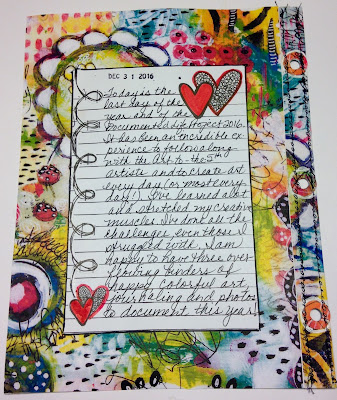 DEC 31 2016
Today is the
last day of the
year and of the
Documented Life Project 2016.
It has been an incredible ex
perience to follow along
with the art to the 5th
artists and to create art
every day (or most every
day!). I've learned a lot
and stretched my creative
muscles. I've done all the
challenges even those I
struggled with. I am
happy to have three over-
flowing binders of
happy colorful art,
journaling and photos
to document this year.